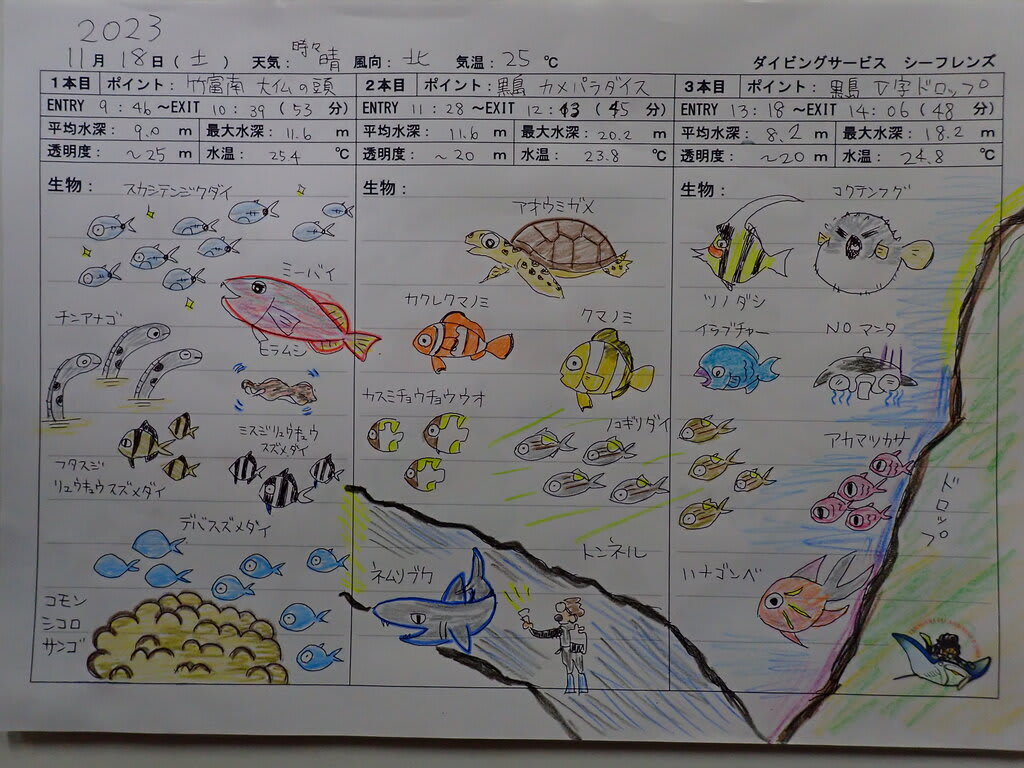 2023
11月 18日(土) 天気: 時々晴 風向: 北 気温: 25 ℃ ダイビングサービス シーフレンズ
1本目 ポイント: 竹富南 大仏の頭
ENTRY 9:46~EXIT 10:39 (53 分)
平均水深: 9.0 m 最大水深: 11.6 m
透明度: ~25 m 水温: 25.4 ℃
生物:
スカシテンジクダイ
ミーバイ
チンアナゴ
ヒラムシ
ミスジリュウキュウ
スズメダイ
フタスジ
リュウキュウスズメダイ
デバスズメダイ
コモン
シコロ
サンゴ
2本目 ポイント: 黒島 カメパラダイス
ENTRY 11:28~EXIT 12:13 (45 分)
平均水深: 11.6 m 最大水深: 20.2 m
透明度: ~20 m 水温: 23.8 ℃
生物:
アオウミガメ
カクレクマノミ
クマノミ
カスミチョウチョウウオ
ノコギリダイ
トンネル
ネムリブカ
3本目 ポイント: 黒島 V字ドロップ
ENTRY 13:18~EXIT 14:06 (48 分)
平均水深: 8.2 m 最大水深: 18.2 m
透明度: ~20 m 水温: 24.8 ℃
生物:
コクテンフグ
ツノダシ
イラブチャー
NOマンタ
アカマツカサ
ドロップ
ハナゴンベ